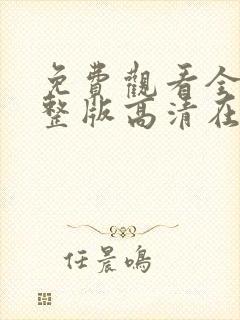 免費觀看全
整版高清在
任晨鳴